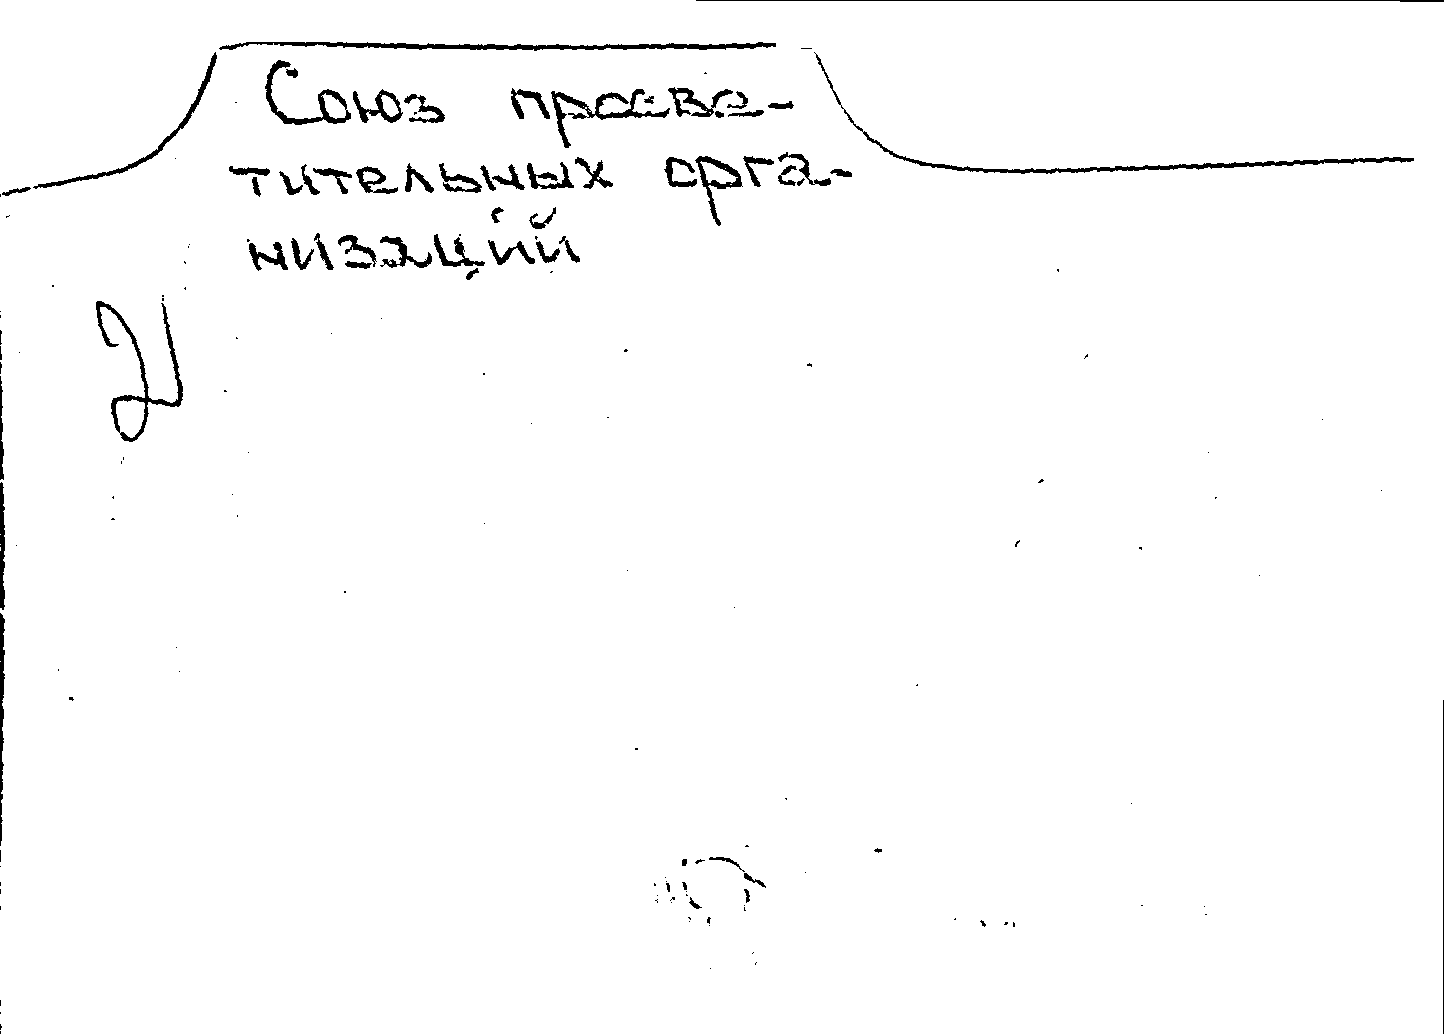 Союз просве-
тительных орга-
низаций